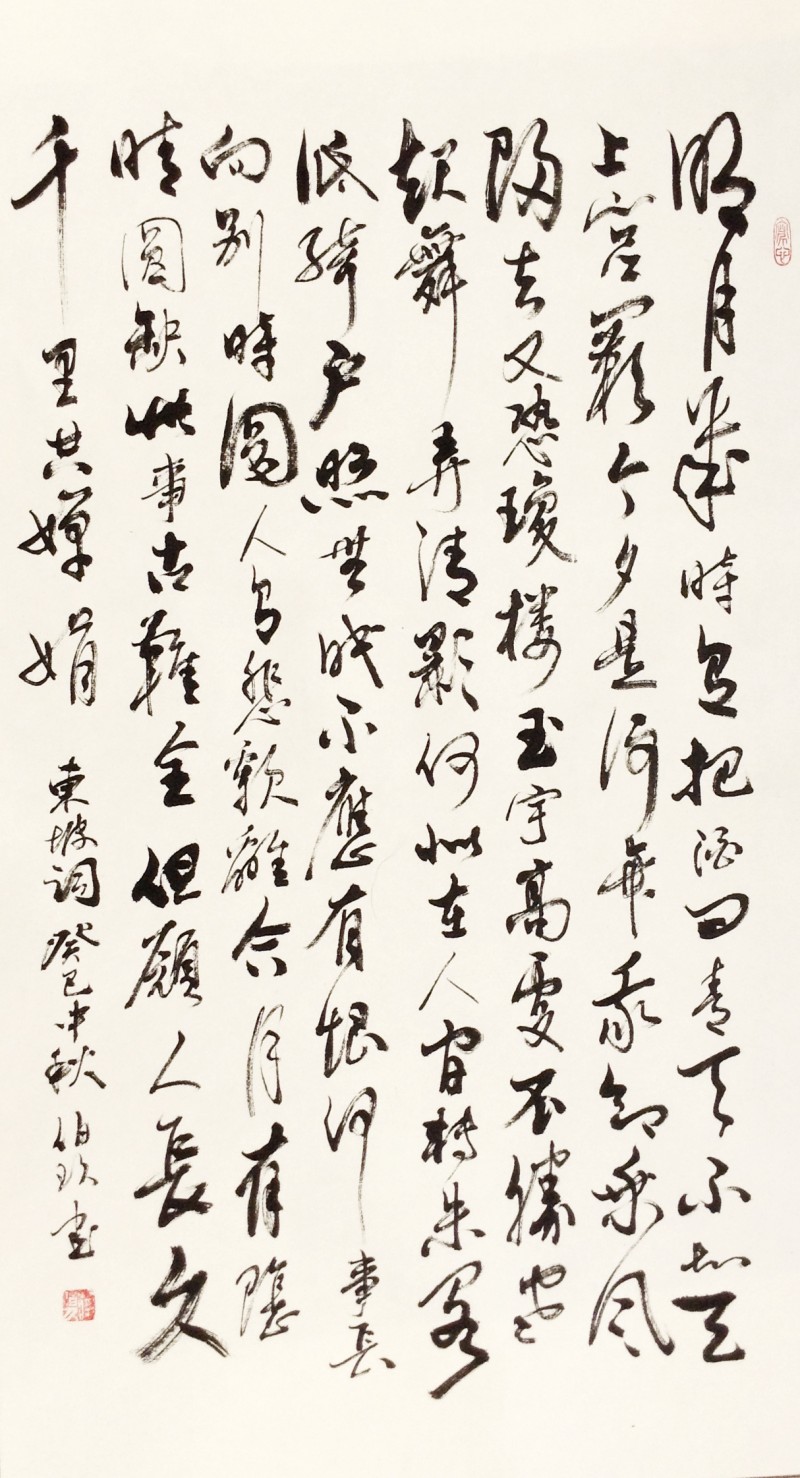 明月幾時有把酒問青天不知天
上宮闕今夕是何年我欲乘風
歸去又恐瓊樓玉宇高處不勝寒
起舞弄清影何似在人間轉朱閣
低綺戶照無眠不應有恨何事長
向別時圓人有悲歡離合月有陰
晴圓缺此事古難全但願人長久
千里共嬋娟 東坡詞癸巳中秋伯書